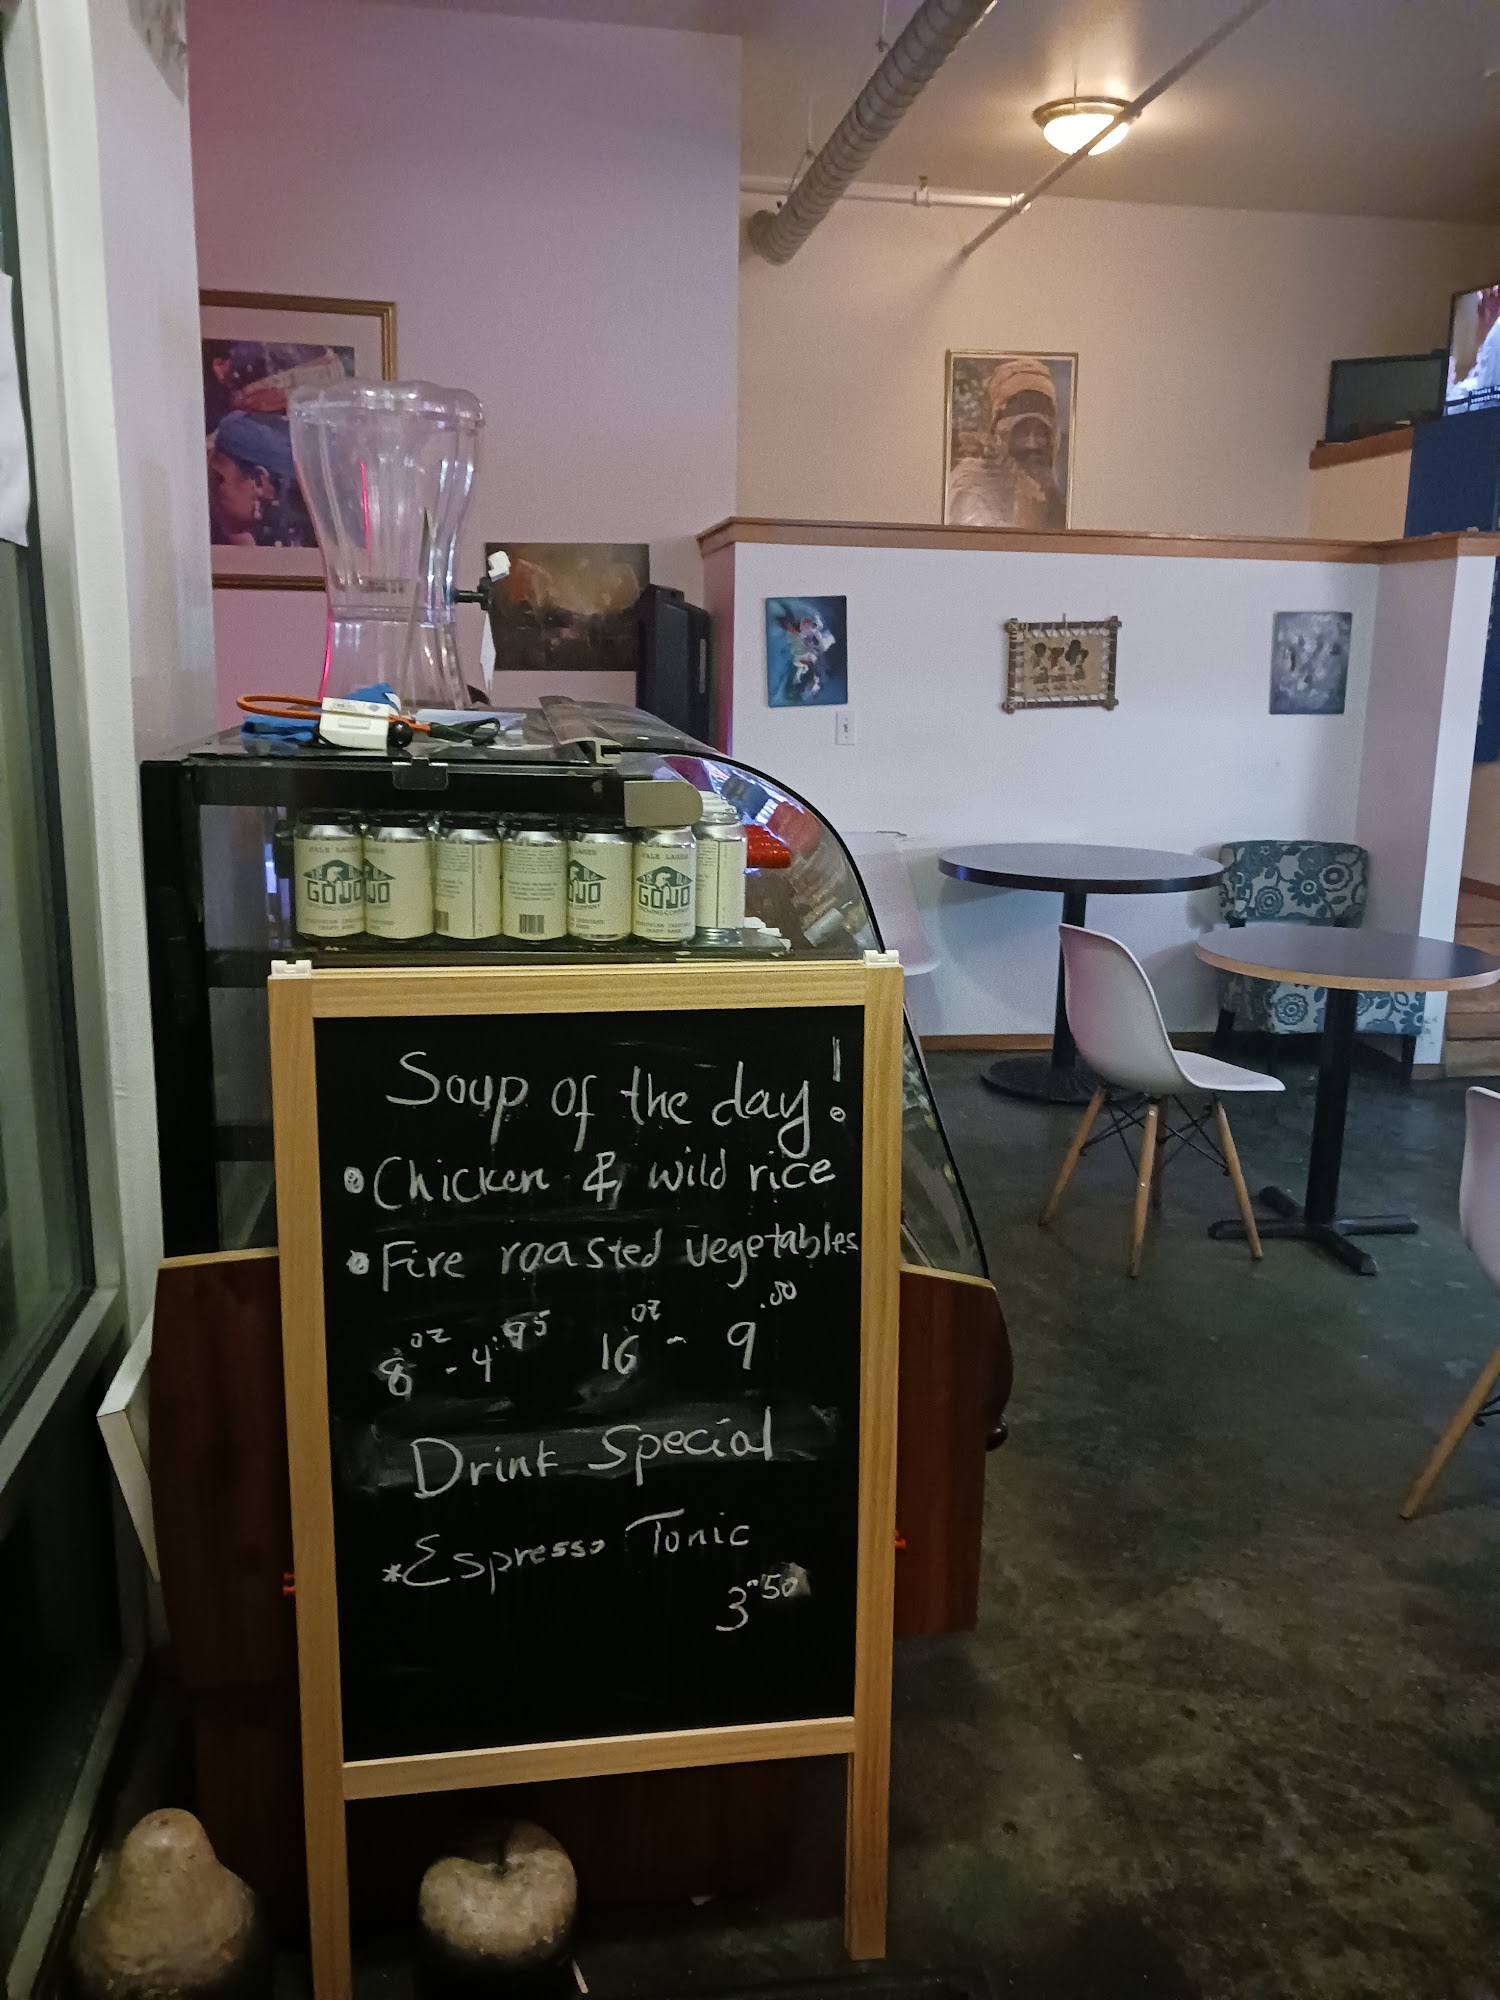 PALE LAGER
GOJO
PALE LAGER
GOJO
BREWING COMPANY
Soup of the day!
• Chicken & wild rice
• Fire roasted vegetables
8oz - 4.95 16oz - 9.00
Drink Special
*Espresso Tonic
3.50